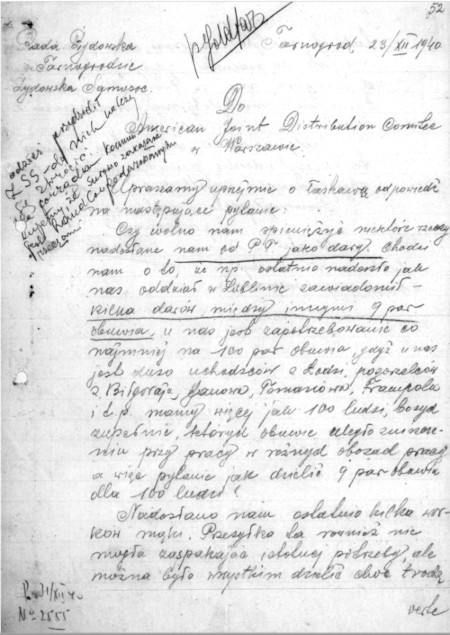 52
Rada Żydowska
w Tarnogrodzie
Żydowska Samopoc.
Tarnogród, 23/XII 1940
Do
American Joint Distribution Comitee
w Warszawie.
odzież przesłał
ŻSS - do nich należy
się zwrócić
Upraszamy uprzejmie o łaskawą odpowiedź
na następujące pytanie:
Czy wolno nam spieniężyć niektóre rzeczy
nadesłane nam od PP jako dary. Chodzi
nam o to, że np. ostatnio nadeszło jak
nas oddział w Lublinie zawiadomił
kilka darów między innymi 9 par
obuwia, u nas jest zapotrzebowanie co
najmniej na 100 par obuwia gdyż u nas
jest dużo uchodźców z Łodzi, pogorzelców
z Biłgoraja, Janowa, Tomaszowa, Frampola
i t.p. mamy więcej jak 100 ludzi, bosych
zupełnie, których obuwie uległo zniszcze-
niu przy pracy w różnych obozach pracy
a więc pytanie jak dzielić 9 par obuwia
dla 100 ludzi?
Nadesłano nam ostatnio kilka wor-
ków mąki. Przesyłka ta również nie
mogła zaspakajać istotnej potrzeby, ale
można było wszystkim dzielić choć trochę
verte
31/XII 40
№ 2555